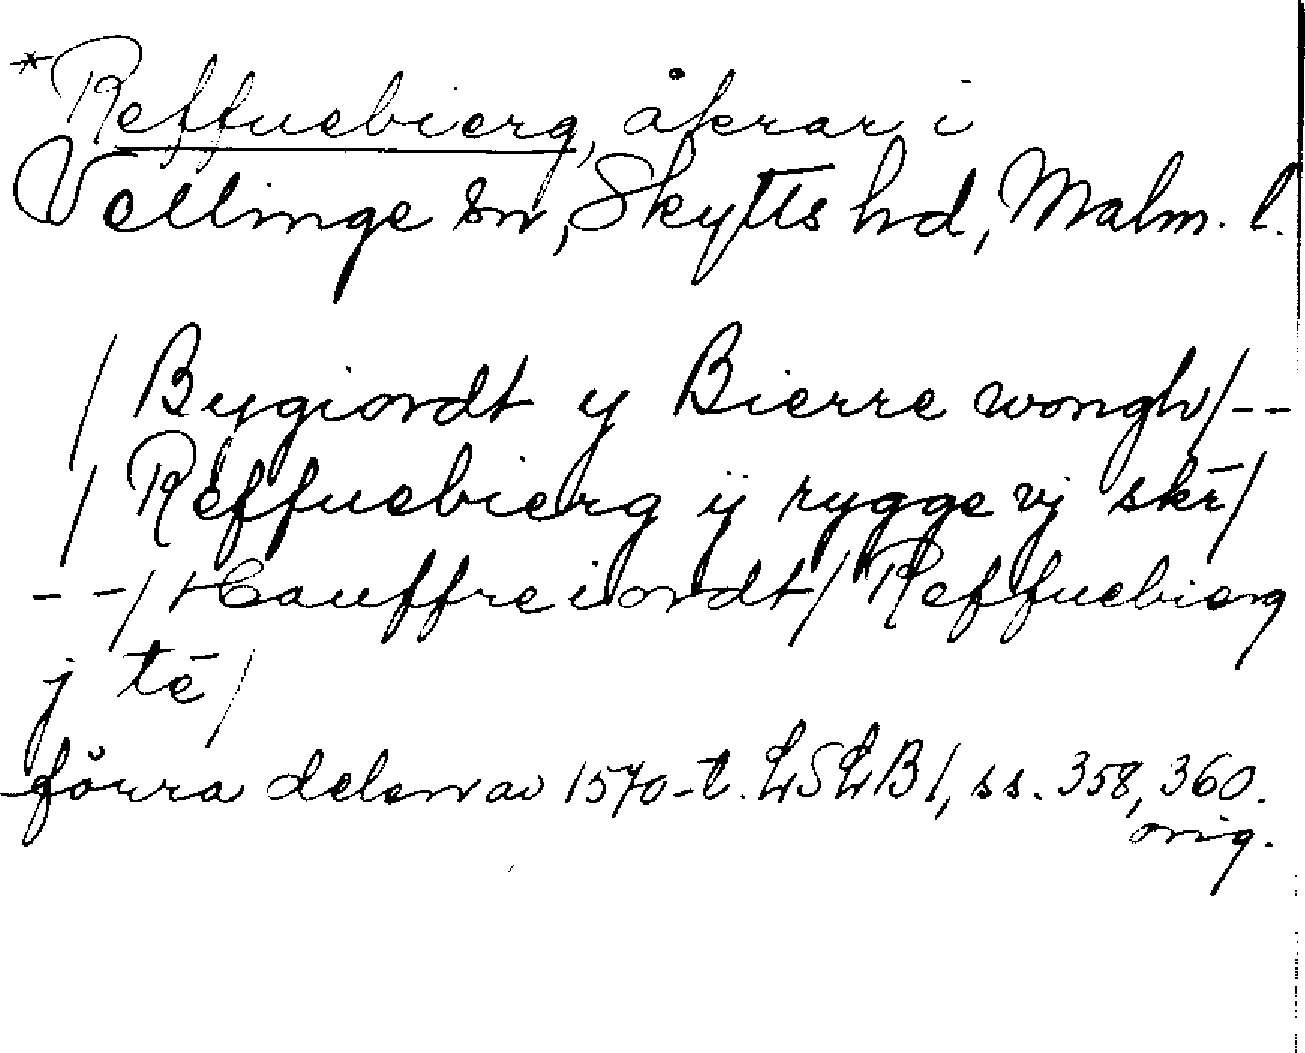 *Reffuebierg, åkrar i
Vellinge sn, Skytts hd, Malm. l.
/ Bygiordt y Bierre wongh/--
/ Reffuebierg ij rygge vj skr̄/
--/ Hauffreiordt/ Reffuebierg
j tē/
förra delen av 1570-t. LSLB 1, ss. 358, 360.
orig.